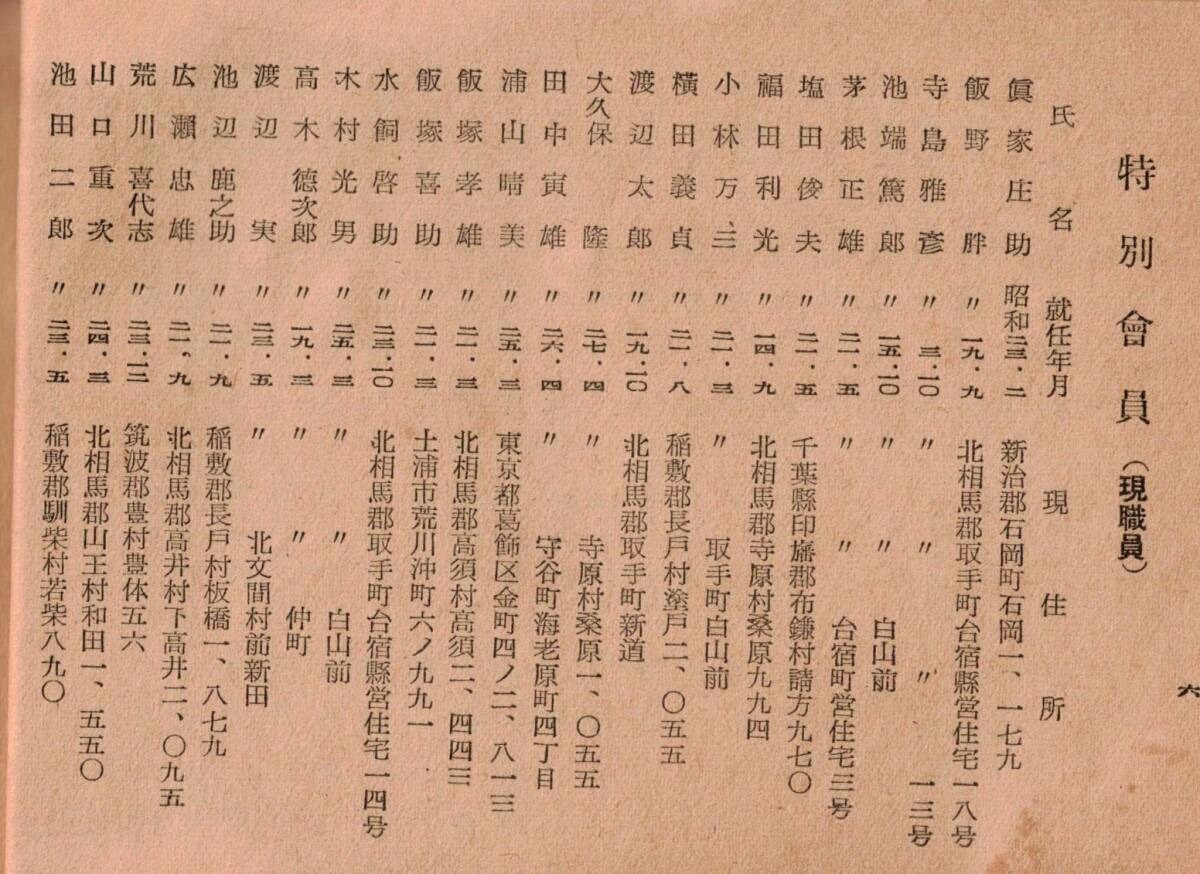 特別會員（現職員）
氏名 就任年月 現住所
眞家庄助 昭和二三・二 新治郡石岡町石岡一、一七九
飯野胖 〃 一九・九 北相馬郡取手町台宿縣営住宅一八号
寺島雅彦 〃 三・一〇 〃 〃 〃 一三号
池端篤郎 〃 一五・一〇 〃 〃 白山前
茅根正雄 〃 二一・五 〃 〃 台宿町営住宅三号
塩田俊夫 〃 二一・五 千葉縣印旛郡布鎌村請方九七〇
福田利光 〃 一四・九 北相馬郡寺原村桑原九九四
小林万三 〃 二一・三 〃 取手町白山前
横田義貞 〃 二一・八 稲敷郡長戸村塗戸二、〇五五
渡辺太郎 〃 一九・一〇 北相馬郡取手町新道
大久保隆 〃 二七・四 〃 寺原村桑原一、〇五五
田中寅雄 〃 二六・四 〃 守谷町海老原町四丁目
浦山晴美 〃 二五・三 東京都葛飾区金町四ノ二、八一三
飯塚孝雄 〃 二一・三 北相馬郡高須村高須二、四四三
飯塚喜助 〃 二一・三 土浦市荒川沖町六ノ九九一
水飼啓助 〃 二三・一〇 北相馬郡取手町台宿縣営住宅一四号
木村光男 〃 二五・三 〃 〃 白山前
高木德次郎 〃 一九・三 〃 〃 仲町
渡辺実 〃 二三・五 〃 北文間村前新田
池辺鹿之助 〃 二一・九 稲敷郡長戸村板橋一、八七九
広瀬忠雄 〃 二一・九 北相馬郡高井村下高井二、〇九五
荒川喜代志 〃 二三・一二 筑波郡豊村豊体五六
山口重次 〃 二四・三 北相馬郡山王村和田一、五五〇
池田二郎 〃 二三・五 稲敷郡馴柴村若柴八九〇
六